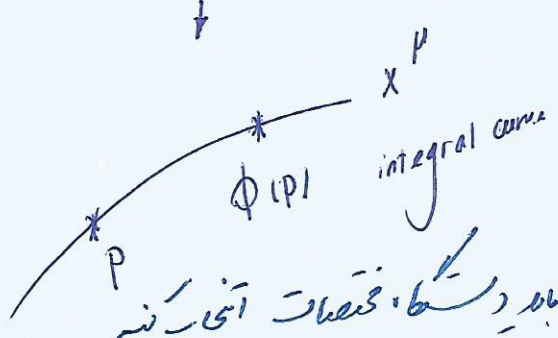 x^μ
integral curve
ϕ(p)
P
باید دستگاه مختصات انتخاب کنیم